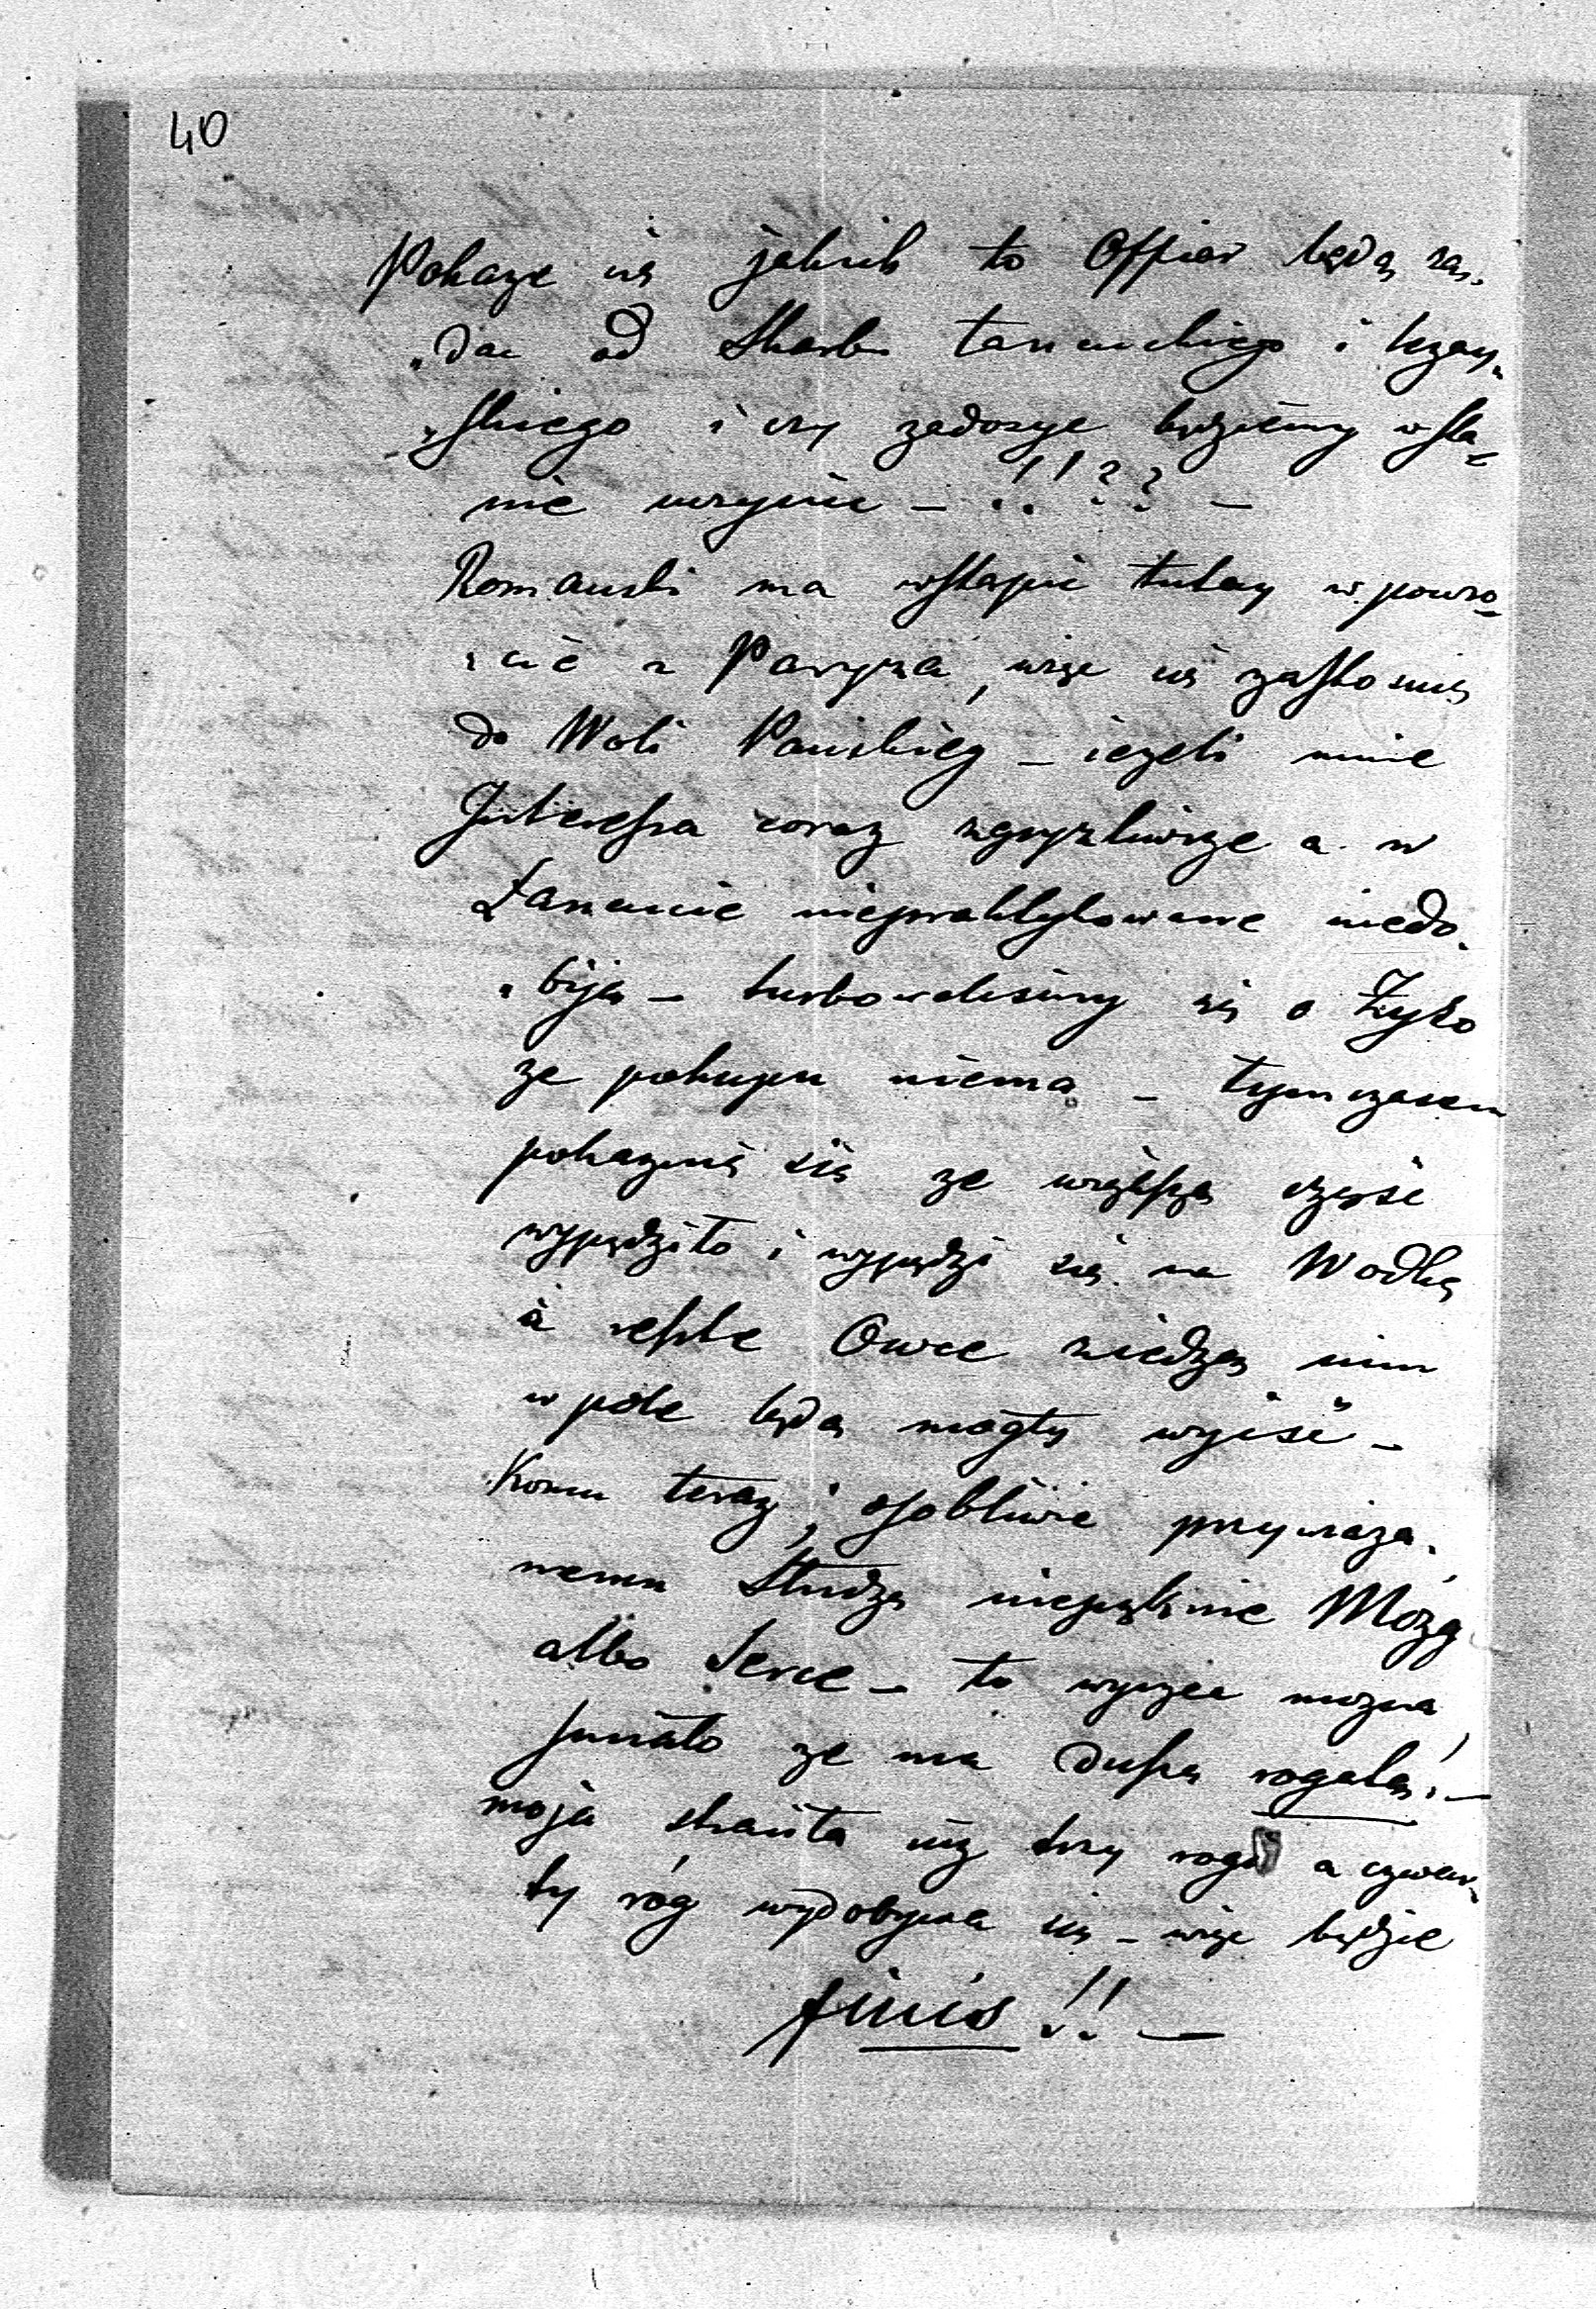 40
Pokaże się jakich to Offiar będą żą,
„dać od Skarbu Łancuckiego i leżay„
„skiego i czy zadosyć będziemy w sta=
nie uczynić – !!?? –
Romański ma wstąpić tutay w powro=
„cie z Paryża, więc się zastosuię
do Woli Pańskiey – ieżeli mnie
Interessa coraz zgryźliwsze a w
Łancucie niepraktykowane niedo„
„biją – turbowaliśmy się o Żyto
że pokupu niema – tymczasem
pokazuię się że większą część
wypędziło i wypędzi się na Wodkę
a resztę Owce zjedzą nim
w pole będą mogły wyiść –
Komu teraz, osobliwie przywiąza„
nemu Słudze niepęknie Mózg
albo Serce – to wyrzec można
śmiało że ma duszę rogatą! –
moja straciła iuż trzy rogi a czwar„
ty róg wydobywa się – więc będzie
finis!! –